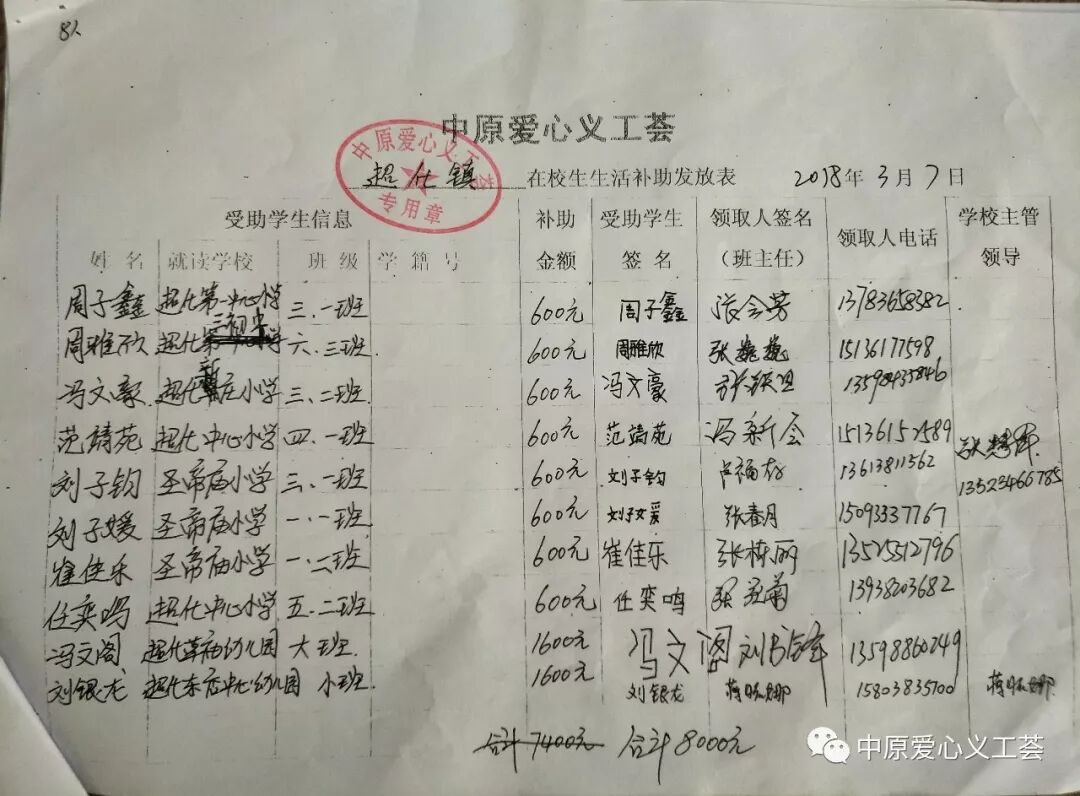 8人
中原爱心义工荟
中原爱心义工荟
专用章
超化镇 在校生生活补助发放表 2018年3月7日
受助学生信息 补助金额 受助学生签名 领取人签名(班主任) 领取人电话 学校主管领导
姓名 就读学校 班级 学籍号
周子鑫 超化第一中心小学 三.一班 600元 周子鑫 张会芳 13783658382
周雅欣 超化三初中 六.三班 600元 周雅欣 张巍巍 15136177598
冯文豪 超化新庄小学 三.二班 600元 冯文豪 13598435846
范靖苑 超化中心小学 四.一班 600元 范靖苑 冯新会 15136157589
刘子钧 圣帝庙小学 三.一班 600元 刘子钧 卢福存 13613811562 13523466785
刘子媛 圣帝庙小学 一.一班 600元 刘子媛 张春月 15093337767
崔佳乐 圣帝庙小学 一.二班 600元 崔佳乐 张栋丽 13525512796
任奕鸣 超化中心小学 五.二班 600元 任奕鸣 13938203682
冯文阁 幼儿园 大班. 1600元 冯文阁 13598860249
刘银龙 超化东店中心幼儿园 小班. 1600元 刘银龙 15803835700
合计7400元 合计8000元
中原爱心义工荟